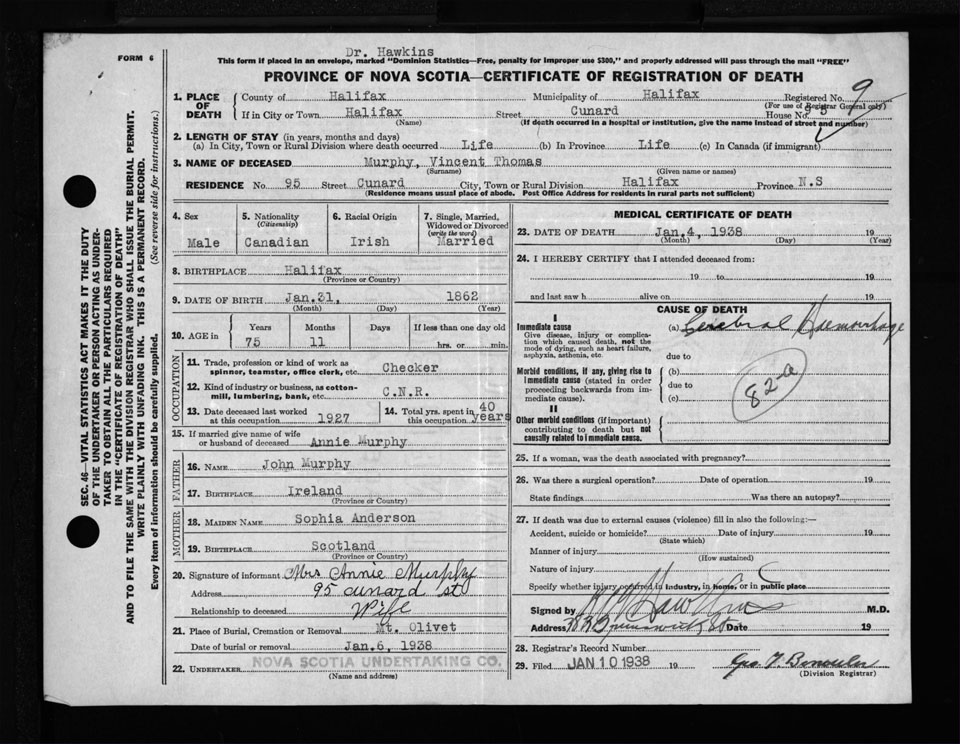 FORM 6
Dr. Hawkins
This form if placed in an envelope, marked "Dominion Statistics—Free, penalty for improper use $300," and properly addressed will pass through the mail "FREE"
PROVINCE OF NOVA SCOTIA—CERTIFICATE OF REGISTRATION OF DEATH
1. PLACE OF DEATH
County of Halifax Municipality of Halifax Registered No. 9
(For use of Registrar General only)
If in City or Town Halifax Street Cunard House No. 95
(Name) (If death occurred in a hospital or institution, give the name instead of street and number)
2. LENGTH OF STAY (in years, months and days)
(a) In City, Town or Rural Division where death occurred Life (b) In Province Life (c) In Canada (if immigrant)
3. NAME OF DECEASED Murphy, Vincent Thomas
(Surname) (Given name or names)
RESIDENCE No. 95 Street Cunard City, Town or Rural Division Halifax Province N.S
(Residence means usual place of abode. Post Office Address for residents in rural parts not sufficient)
4. Sex
Male
5. Nationality
(Citizenship)
Canadian
6. Racial Origin
Irish
7. Single, Married, Widowed or Divorced
(write the word)
Married
8. BIRTHPLACE Halifax
(Province or Country)
9. DATE OF BIRTH Jan.31, 1862
(Month) (Day) (Year)
10. AGE in
Years Months Days If less than one day old
75 11 hrs. or min.
OCCUPATION
11. Trade, profession or kind of work as
spinner, teamster, office clerk, etc. Checker
12. Kind of industry or business, as cotton-
mill, lumbering, bank, etc. C.N.R.
13. Date deceased last worked
at this occupation 1927
14. Total yrs. spent in
this occupation 40 years
15. If married give name of wife
or husband of deceased Annie Murphy
FATHER
16. NAME John Murphy
17. BIRTHPLACE Ireland
(Province or Country)
MOTHER
18. MAIDEN NAME Sophia Anderson
19. BIRTHPLACE Scotland
(Province or Country)
20. Signature of informant Mrs Annie Murphy
Address 95 cunard st
Relationship to deceased Wife
21. Place of Burial, Cremation or Removal Mt. Olivet
Date of burial or removal Jan.6, 1938
22. UNDERTAKER NOVA SCOTIA UNDERTAKING CO.
(Name and address)
MEDICAL CERTIFICATE OF DEATH
23. DATE OF DEATH Jan.4, 1938 19
(Month) (Day) (Year)
24. I HEREBY CERTIFY that I attended deceased from:
19 to 19
and last saw h alive on 19
CAUSE OF DEATH
I
Immediate cause
Give disease, injury or complica-
tion which caused death, not the
mode of dying, such as heart failure,
asphyxia, asthenia, etc.
(a) Cerebral Haemorrhage
due to
Morbid conditions, if any, giving rise to
immediate cause (stated in order
proceeding backwards from im-
mediate cause).
(b)
due to
(c)
82-a
II
Other morbid conditions (if important)
contributing to death but not
causally related to immediate cause.
25. If a woman, was the death associated with pregnancy?
26. Was there a surgical operation? Date of operation 19
State findings Was there an autopsy?
27. If death was due to external causes (violence) fill in also the following:—
Accident, suicide or homicide? Date of injury 19
(State which)
Manner of injury
(How sustained)
Nature of injury
Specify whether injury occurred in industry, in home, or in public place
Signed by Hawkins M.D.
Address Brunswick St Date 19
28. Registrar's Record Number
29. Filed JAN 10 1938 19
(Division Registrar)
SEC. 46—VITAL STATISTICS ACT MAKES IT THE DUTY
OF THE UNDERTAKER OR PERSON ACTING AS UNDER-
TAKER TO OBTAIN ALL THE PARTICULARS REQUIRED
IN THE "CERTIFICATE OF REGISTRATION OF DEATH"
AND TO FILE THE SAME WITH THE DIVISION REGISTRAR WHO SHALL ISSUE THE BURIAL PERMIT.
WRITE PLAINLY WITH UNFADING INK. THIS IS A PERMANENT RECORD.
Every item of information should be carefully supplied. (See reverse side for instructions.)